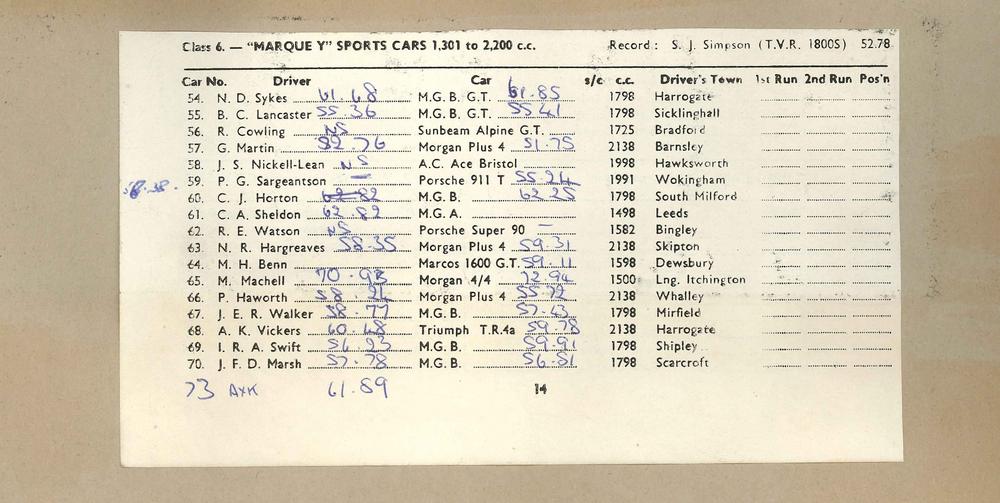 Class 6. — "MARQUE Y" SPORTS CARS 1,301 to 2,200 c.c. Record: S. J. Simpson (T.V.R. 1800S) 52.78
Car No. Driver Car s/c c.c. Driver's Town 1st Run 2nd Run Pos'n
54. N. D. Sykes 61.68 M.G.B. G.T. 61.85 1798 Harrogate
55. B. C. Lancaster 55.36 M.G.B. G.T. 55.41 1798 Sicklinghall
56. R. Cowling NS Sunbeam Alpine G.T. 1725 Bradford
57. G. Martin 52.76 Morgan Plus 4 51.75 2138 Barnsley
58. J. S. Nickell-Lean NS A.C. Ace Bristol 1998 Hawksworth
59. P. G. Sargeantson — Porsche 911 T 55.24 1991 Wokingham
60. C. J. Horton 62.82 M.G.B. 62.25 1798 South Milford
61. C. A. Sheldon 62.82 M.G.A. 1498 Leeds
62. R. E. Watson NS Porsche Super 90 — 1582 Bingley
63. N. R. Hargreaves 58.35 Morgan Plus 4 59.31 2138 Skipton
64. M. H. Benn Marcos 1600 G.T. 59.11 1598 Dewsbury
65. M. Machell 70.93 Morgan 4/4 72.94 1500 Lng. Itchington
66. P. Haworth 58.26 Morgan Plus 4 55.72 2138 Whalley
67. J. E. R. Walker 58.77 M.G.B. 57.43 1798 Mirfield
68. A. K. Vickers 60.68 Triumph T.R.4a 59.78 2138 Harrogate
69. I. R. A. Swift 56.23 M.G.B. 59.91 1798 Shipley
70. J. F. D. Marsh 57.78 M.G.B. 56.51 1798 Scarcroft
73 61.89 14